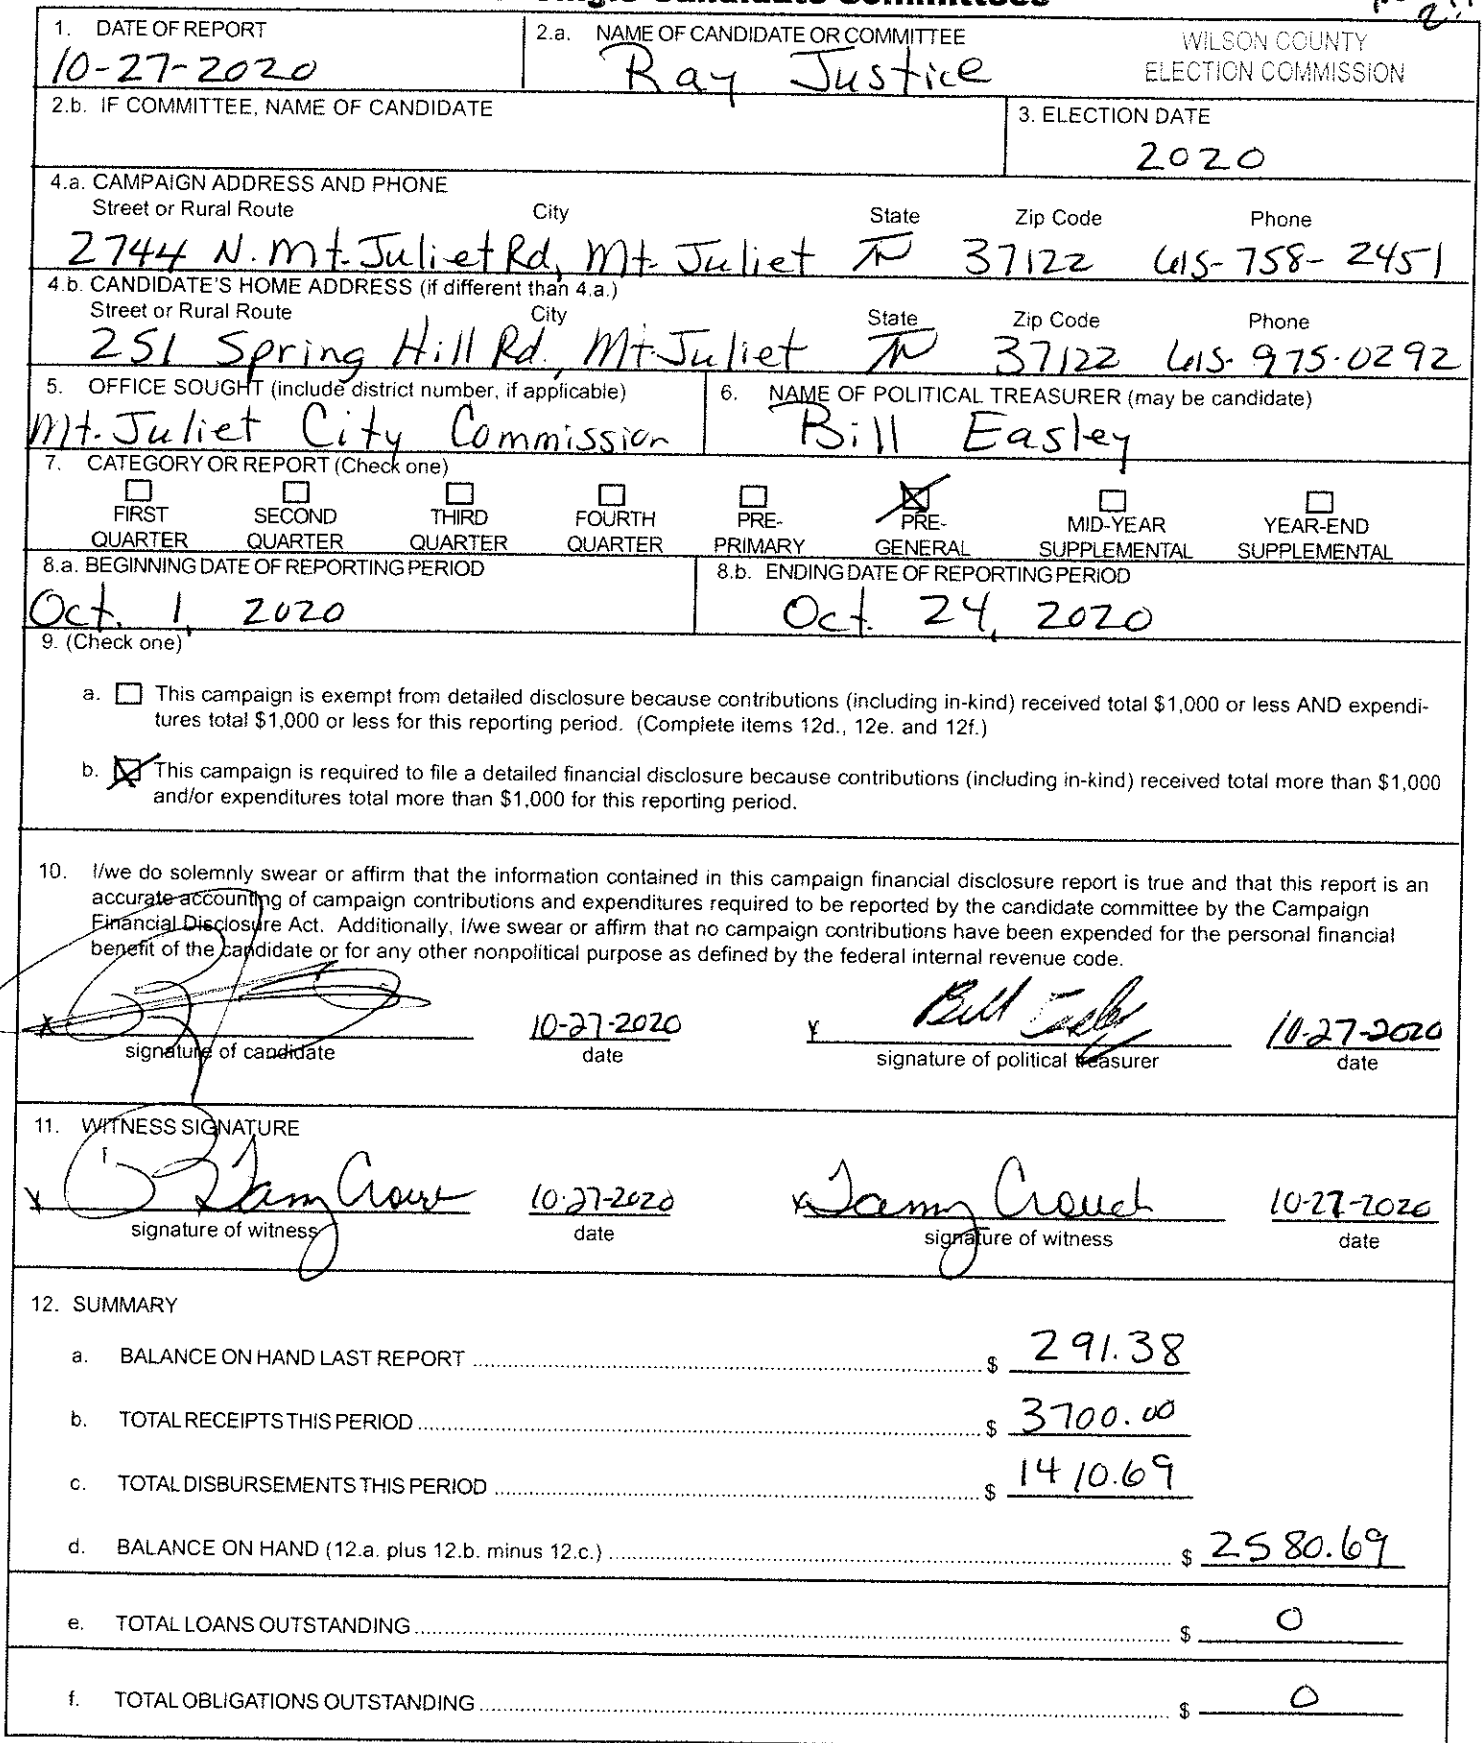 Single Candidate Committees
1. DATE OF REPORT
10-27-2020
2.a. NAME OF CANDIDATE OR COMMITTEE
Ray Justice
WILSON COUNTY
ELECTION COMMISSION
2.b. IF COMMITTEE, NAME OF CANDIDATE
3. ELECTION DATE
2020
4.a. CAMPAIGN ADDRESS AND PHONE
Street or Rural Route City State Zip Code Phone
2744 N. Mt. Juliet Rd, Mt. Juliet TN 37122 615-758-2451
4.b. CANDIDATE'S HOME ADDRESS (if different than 4.a.)
Street or Rural Route City State Zip Code Phone
251 Spring Hill Rd, Mt. Juliet TN 37122 615-975-0292
5. OFFICE SOUGHT (include district number, if applicable)
Mt. Juliet City Commission
6. NAME OF POLITICAL TREASURER (may be candidate)
Bill Easley
7. CATEGORY OR REPORT (Check one)
FIRST QUARTER
SECOND QUARTER
THIRD QUARTER
FOURTH QUARTER
PRE-PRIMARY
PRE-GENERAL
MID-YEAR SUPPLEMENTAL
YEAR-END SUPPLEMENTAL
8.a. BEGINNING DATE OF REPORTING PERIOD
Oct. 1, 2020
8.b. ENDING DATE OF REPORTING PERIOD
Oct. 24, 2020
9. (Check one)
a. This campaign is exempt from detailed disclosure because contributions (including in-kind) received total $1,000 or less AND expendi-
tures total $1,000 or less for this reporting period. (Complete items 12d., 12e. and 12f.)
b. This campaign is required to file a detailed financial disclosure because contributions (including in-kind) received total more than $1,000
and/or expenditures total more than $1,000 for this reporting period.
10. I/we do solemnly swear or affirm that the information contained in this campaign financial disclosure report is true and that this report is an
accurate accounting of campaign contributions and expenditures required to be reported by the candidate committee by the Campaign
Financial Disclosure Act. Additionally, I/we swear or affirm that no campaign contributions have been expended for the personal financial
benefit of the candidate or for any other nonpolitical purpose as defined by the federal internal revenue code.
x 10-27-2020 x Bill Easley 10-27-2020
signature of candidate date signature of political treasurer date
11. WITNESS SIGNATURE
x 10-27-2020 x Tammy Crouch 10-27-2020
signature of witness date signature of witness date
12. SUMMARY
a. BALANCE ON HAND LAST REPORT $ 291.38
b. TOTAL RECEIPTS THIS PERIOD $ 3700.00
c. TOTAL DISBURSEMENTS THIS PERIOD $ 1410.69
d. BALANCE ON HAND (12.a. plus 12.b. minus 12.c.) $ 2580.69
e. TOTAL LOANS OUTSTANDING $ 0
f. TOTAL OBLIGATIONS OUTSTANDING $ 0